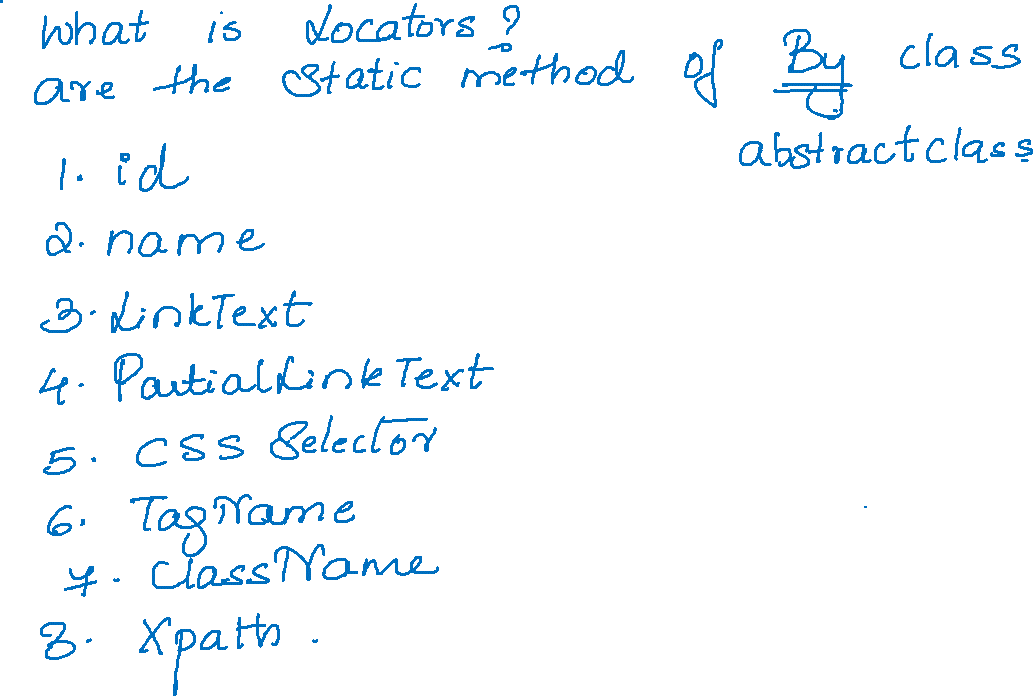 What is Locators?
are the static method of By class
abstract class
1. id
2. name
3. LinkText
4. PartialLinkText
5. CSS Selector
6. TagName
7. ClassName
8. Xpath.